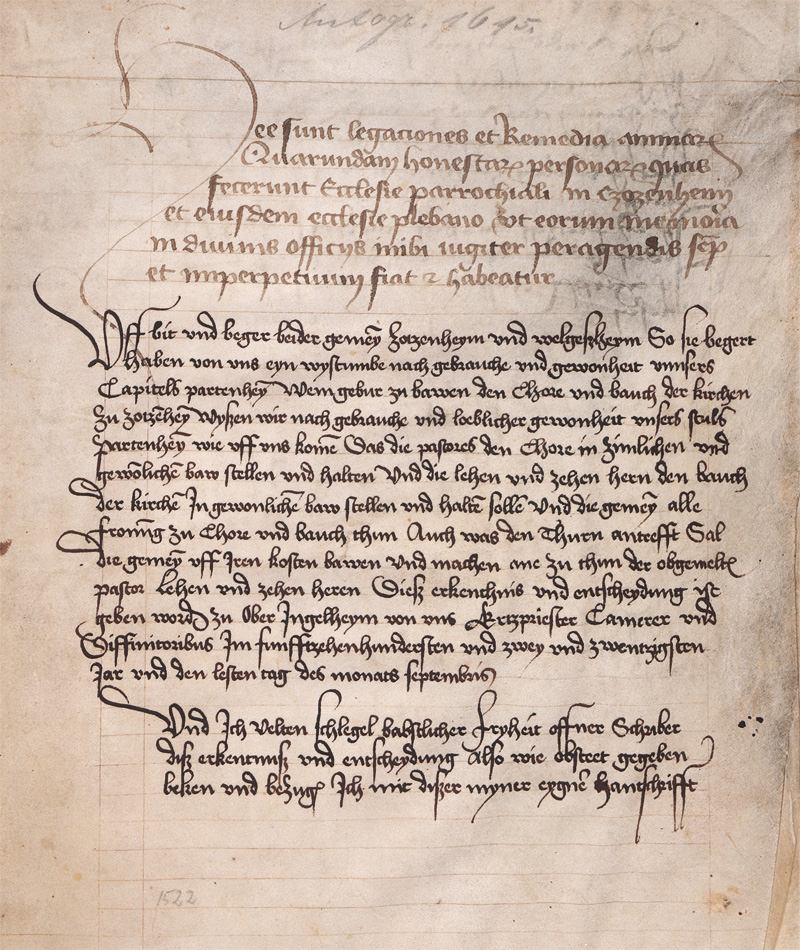 Autogr. 1615.
Hee sunt legaciones et Remedia animarꝝ
Quarundam honestarꝝ personarꝝ quas
fecerunt Ecclesie parrochiali in Czozenheim
et eiusdem ecclesie plebano Vt eorum memoria
in diuinis officijs inibi iugiter peragendis semp
et inperpetuum fiat ⁊ habeatur
Vff bit vnd beger beider gemey̅ Zotzenheym vnd welgeszheym So sie begert
haben von vns eyn wystumbe nach gebrauche vnd gewonheit vnnsers
Capitels partenhey̅ Wem gebur zu bawen den Chore vnd bauch der kirchen
zu zotzēhey̅ Wyszen wir nach gebrauche vnd loeblicher gewonheit vnsers stuls
Partenhey̅ wie vff vns kome̅ Das die pastores den Chore in zimlichen vnd
gewōlichē baw stellen vnd halten Vnd die lehen vnd zehen hern den bauch
der kirchē In gewonlichē baw stellen vnd haltē sollē Vnd die gemey̅ alle
fronu̅g zu Chore vnd bauch thun Auch was den Thurn antrefft Sal
die gemey̅ vff Iren kosten bawen vnd machen ane zu thun der obgemeltē
pastor Lehen vnd zehen heren Diesz erkenthnis vnd entscheydung ist
geben wordē zu Ober Ingelheym von vns Ertzpriester Camerer vnd
Diffinitoribus Im funfftzehenhundersten vnd zwey vnd zwentzigsten
Jar vnd den lesten tag des monats septembris
Vnd Ich Velten schlegel babstlicher fryheit offner Schriber
disz erkentnusz vnd entscheydung Also wie obsteet gegeben
beken vnd bezug Ich mit diszer myner eygnē Hantschrifft
1522